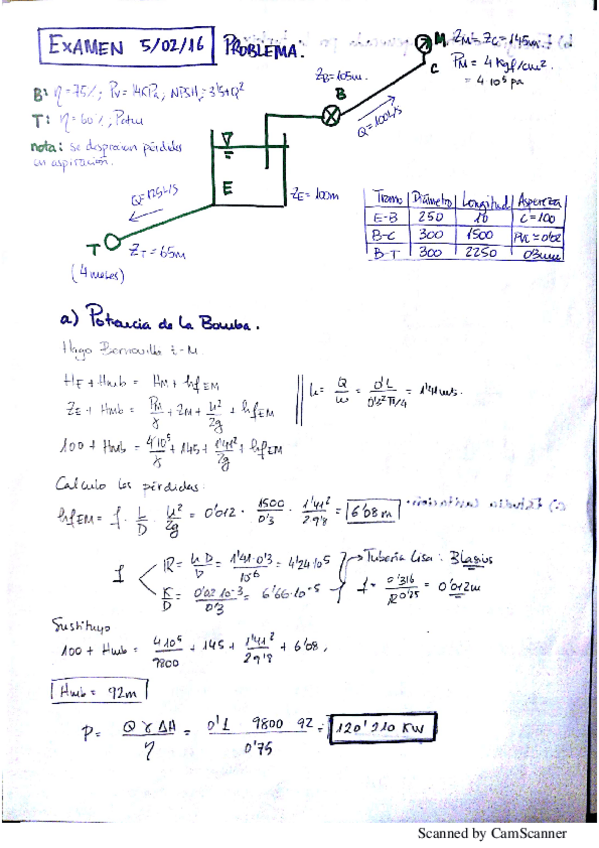 EXAMEN 5/02/16 PROBLEMA.
B: η=75%; Pv=14KPa, NPSHr=3'5+Q²
T: η=60%; P
nota: se desprecian pérdidas
en aspiración.
ZM=Zc=145m.
M
PM = 4 Kgf/cm².
= 4·10⁵ pa
C
ZB=105m.
B
Q=100L/s
E
ZE=100m
Q=125L/s
T
ZT=65m
Tramo Diámetro Longitud Aspereza
E-B 250 10 C=100
B-C 300 1500 PVC=0'02
B-T 300 2250 0'3mm
a) Potencia de la Bomba.
Hago Bernoulli E-M.
HE + Hmb = HM + hfEM
ZE + Hmb = PM/γ + ZM + u²/2g + hfEM
u = Q/ω = 0'1/0'3²π/4 = 1'41m/s.
100 + Hmb = 4·10⁵/γ + 145 + 1'41²/2g + hfEM
Calculo las pérdidas.
hfEM = f · L/D · u²/2g = 0'012 · 1500/0'3 · 1'41²/2·9'8 = 6'08m
f
R = u·D/υ = 1'41·0'3/10⁻⁶ = 4'24·10⁵
K/D = 0'02·10⁻³/0'3 = 6'66·10⁻⁵
Tubería Lisa: Blasius
f = 0'316/R^0'25 = 0'012m
Sustituyo
100 + Hmb = 4·10⁵/9800 + 145 + 1'41²/2·9'8 + 6'08,
Hmb = 92m
P = Q γ ΔH/η = 0'1 · 9800 · 92/0'75 = 120'210 KW
Scanned by CamScanner